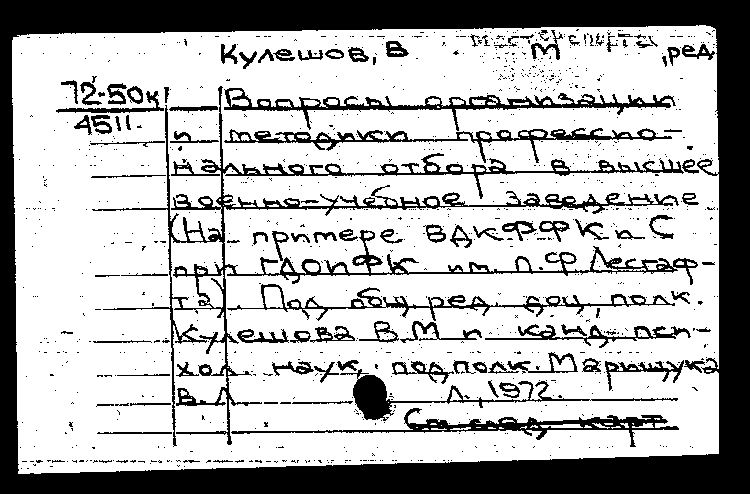 Кулешов, В. М , ред.
72-50к
4511.
Вопросы организации
и методики профессио-
нального отбора в высшее
военно-учебное заведение
(На примере ВДКФФК и С
при ГДОИФК им. П.Ф Лесгаф-
та). Под общ. ред. доц, полк.
Кулешова В.М и канд. пси-
хол. наук, подполк. Марищука
В.Л Л., 1972.
См след. карт